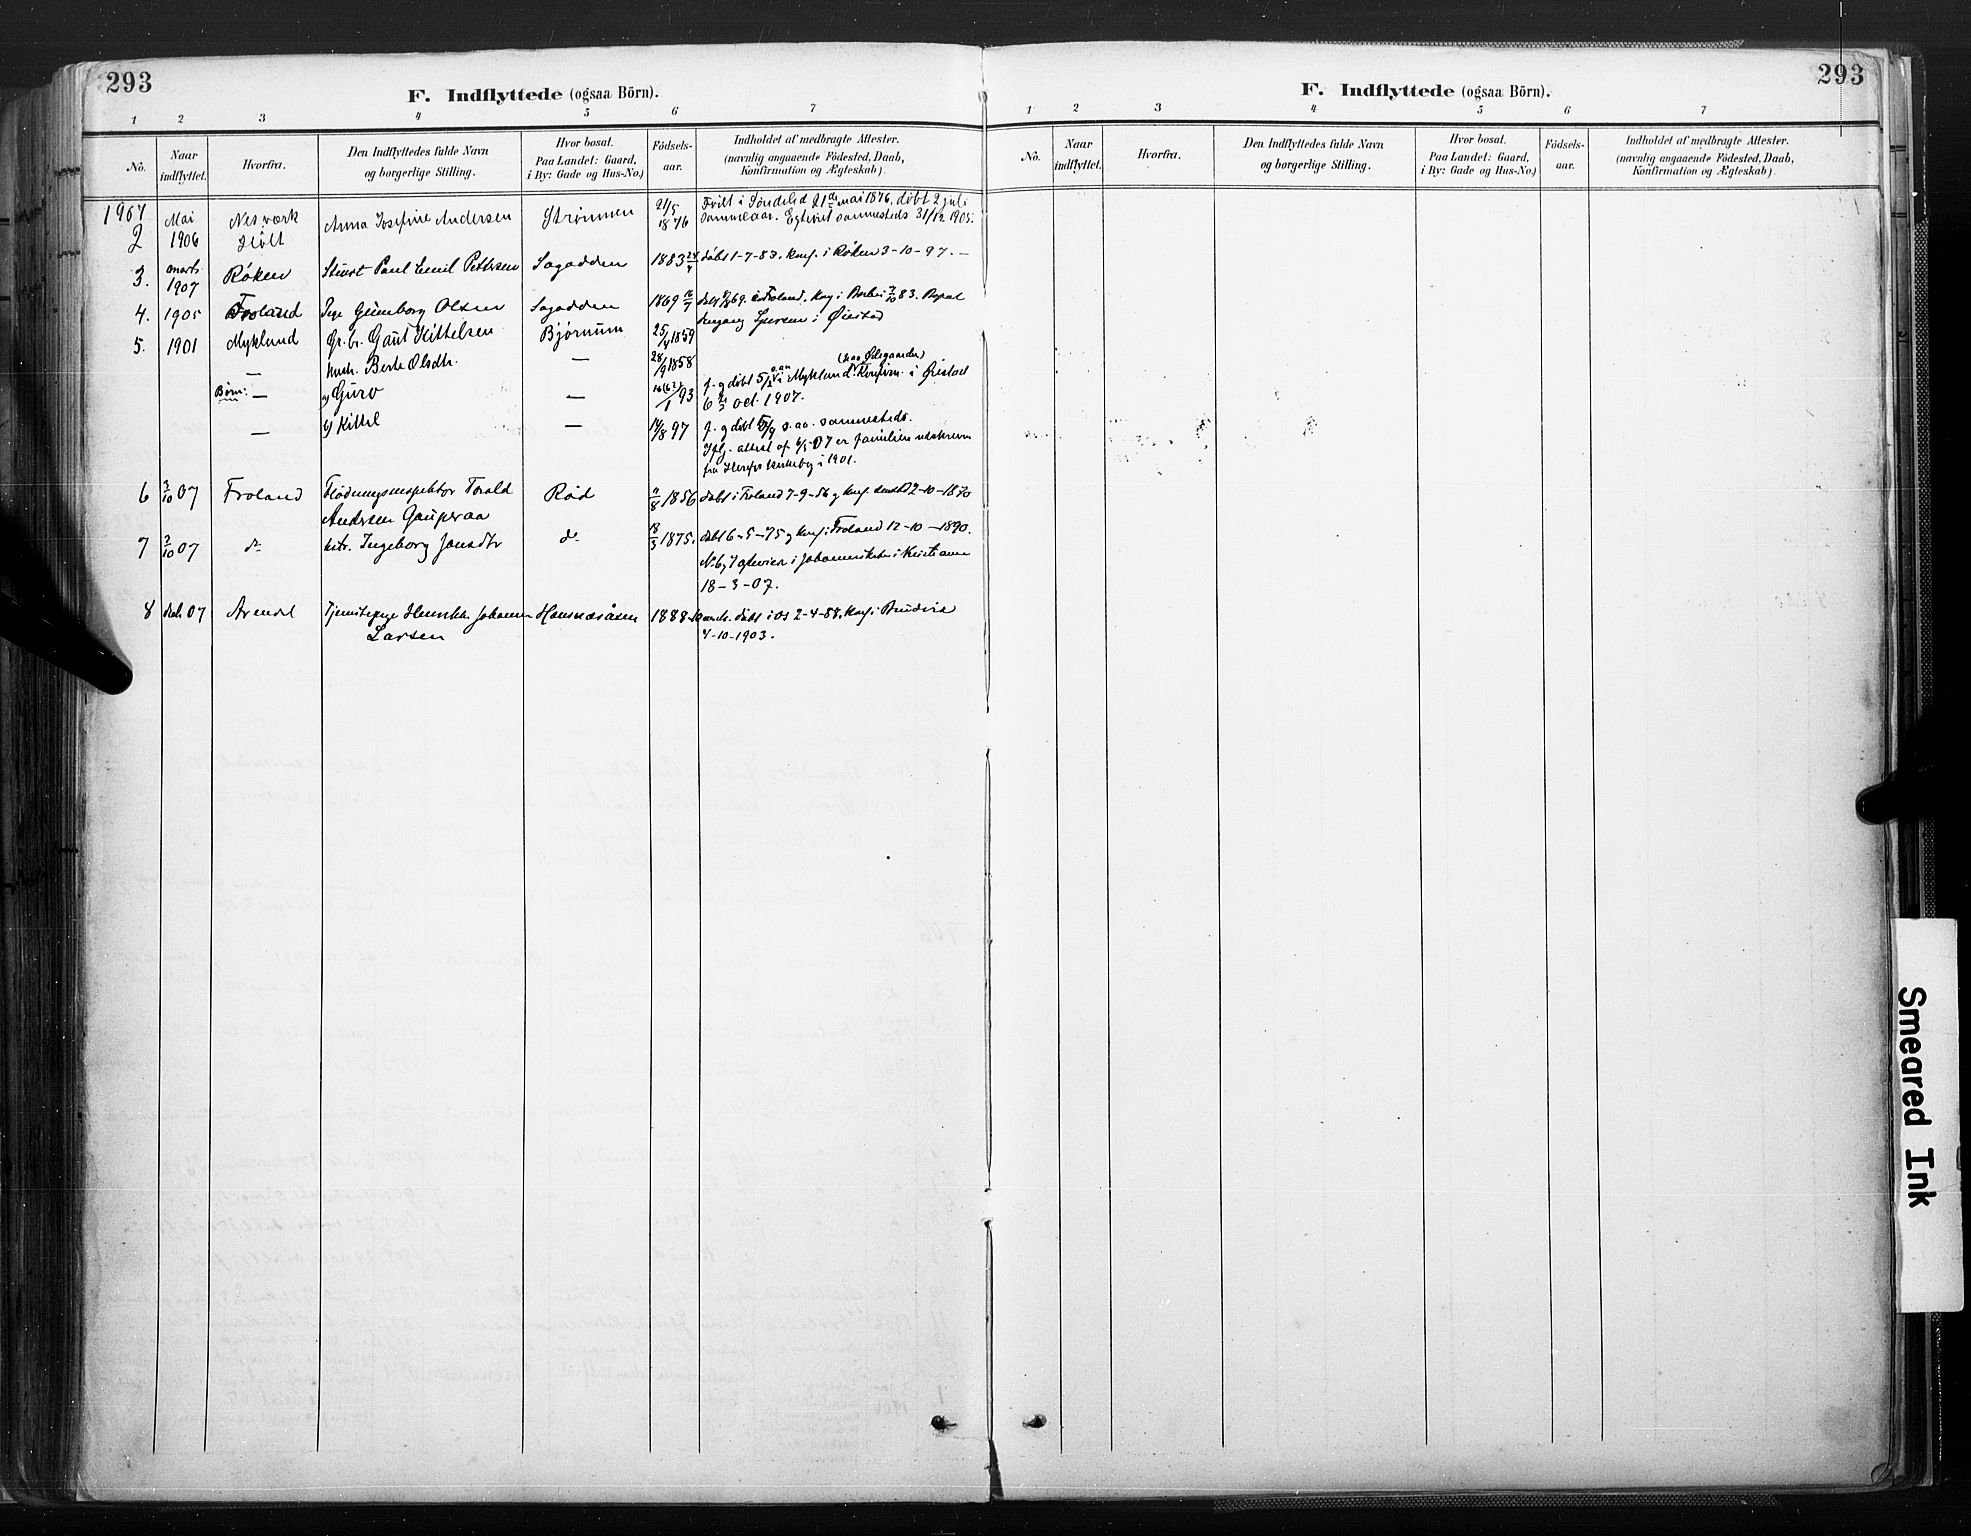 293
F. Indflyttede (ogsaa Börn).
1 2 3 4 5 6 7
No.
Naar indflyttet.
Hvorfra.
Den Indflyttedes fulde Navn
og borgerlige Stilling.
Hvor bosat.
Paa Landet: Gaard,
i By: Gade og Hus-No.)
Födsels-
aar.
Indholdet af medbragte Attester.
(navnlig angaaende Födested, Daab,
Konfirmation og Ægteskab).
1907
2 Mai 1906 Nesværk Holt Anna Josefine Andersen Strømmen 21/5 1876 Født i Søndeled 21de mai 1876, døbt 2 juli
samme aar. Egteviet sammesteds 31/12 1905.
3. marts 1907 Røken Paul Emil Pettersen Sagodden 1883 døbt 1-7-83. konf. i Røken 3-10-97. —
4. 1905 Froland Gunborg Olsen Sagodden 1869 Froland, konf. i 83.
i Øiestad
5. 1901 Mykland Gr.br. Gaut Kittelsen Bjørnum 25/4 1859
— hustr. Berte Olsdtr. — 28/9 1858
Børn: — a) Guro — 93 f. g døbt i Mykland. Konfirm. i Øiestad
6 od. 1907.
— b) Kittel — 14/8 97 f. g døbt s. aa. sammesteds.
Iflg. attest af 07 er familien udskreven
fra i 1901.
6 3/10 07 Froland Flødningsinspektør Torald Rød 11/8 1856 døbt i Froland 7-9-56 g konf. 2-10-1870
Andersen Gauperaa
7 3/10 07 do hstr. Ingeborg Jonsdtr do 18/3 1875. døbt 6-5-75 g konf. i Froland 12-10-1890.
No 6, 7 gteviet i Johanneskirken i Kristiania
18-3-07.
8 07 Arendal Tjenestepige Johanne 1888 døbt i Os 2-4-88, konf. i
Larsen 4-10-1903.
293
F. Indflyttede (ogsaa Börn).
1 2 3 4 5 6 7
No.
Naar
indflyttet.
Hvorfra.
Den Indflyttedes fulde Navn
og borgerlige Stilling.
Hvor bosat.
Paa Landet: Gaard,
i By: Gade og Hus-No.)
Födsels-
aar.
Indholdet af medbragte Attester.
(navnlig angaaende Födested, Daab,
Konfirmation og Ægteskab).
Smeared Ink